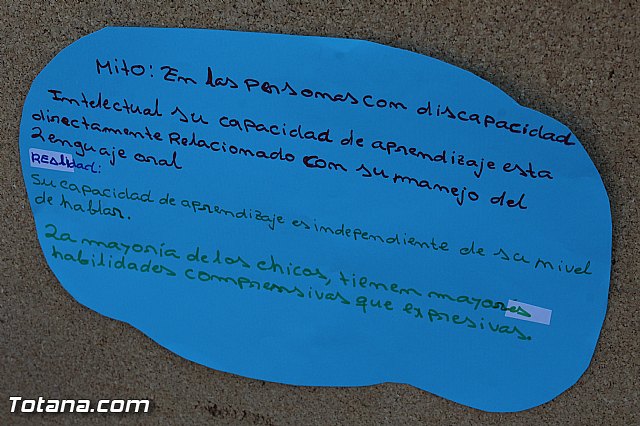 Mito: En las personas con discapacidad
Intelectual su capacidad de aprendizaje esta
directamente Relacionado con su manejo del
Lenguaje oral
REALidad:
Su capacidad de aprendizaje es independiente de su nivel
de hablar.
La mayoría de los chicos, tienen mayores
habilidades comprensivas que expresivas.
Totana.com